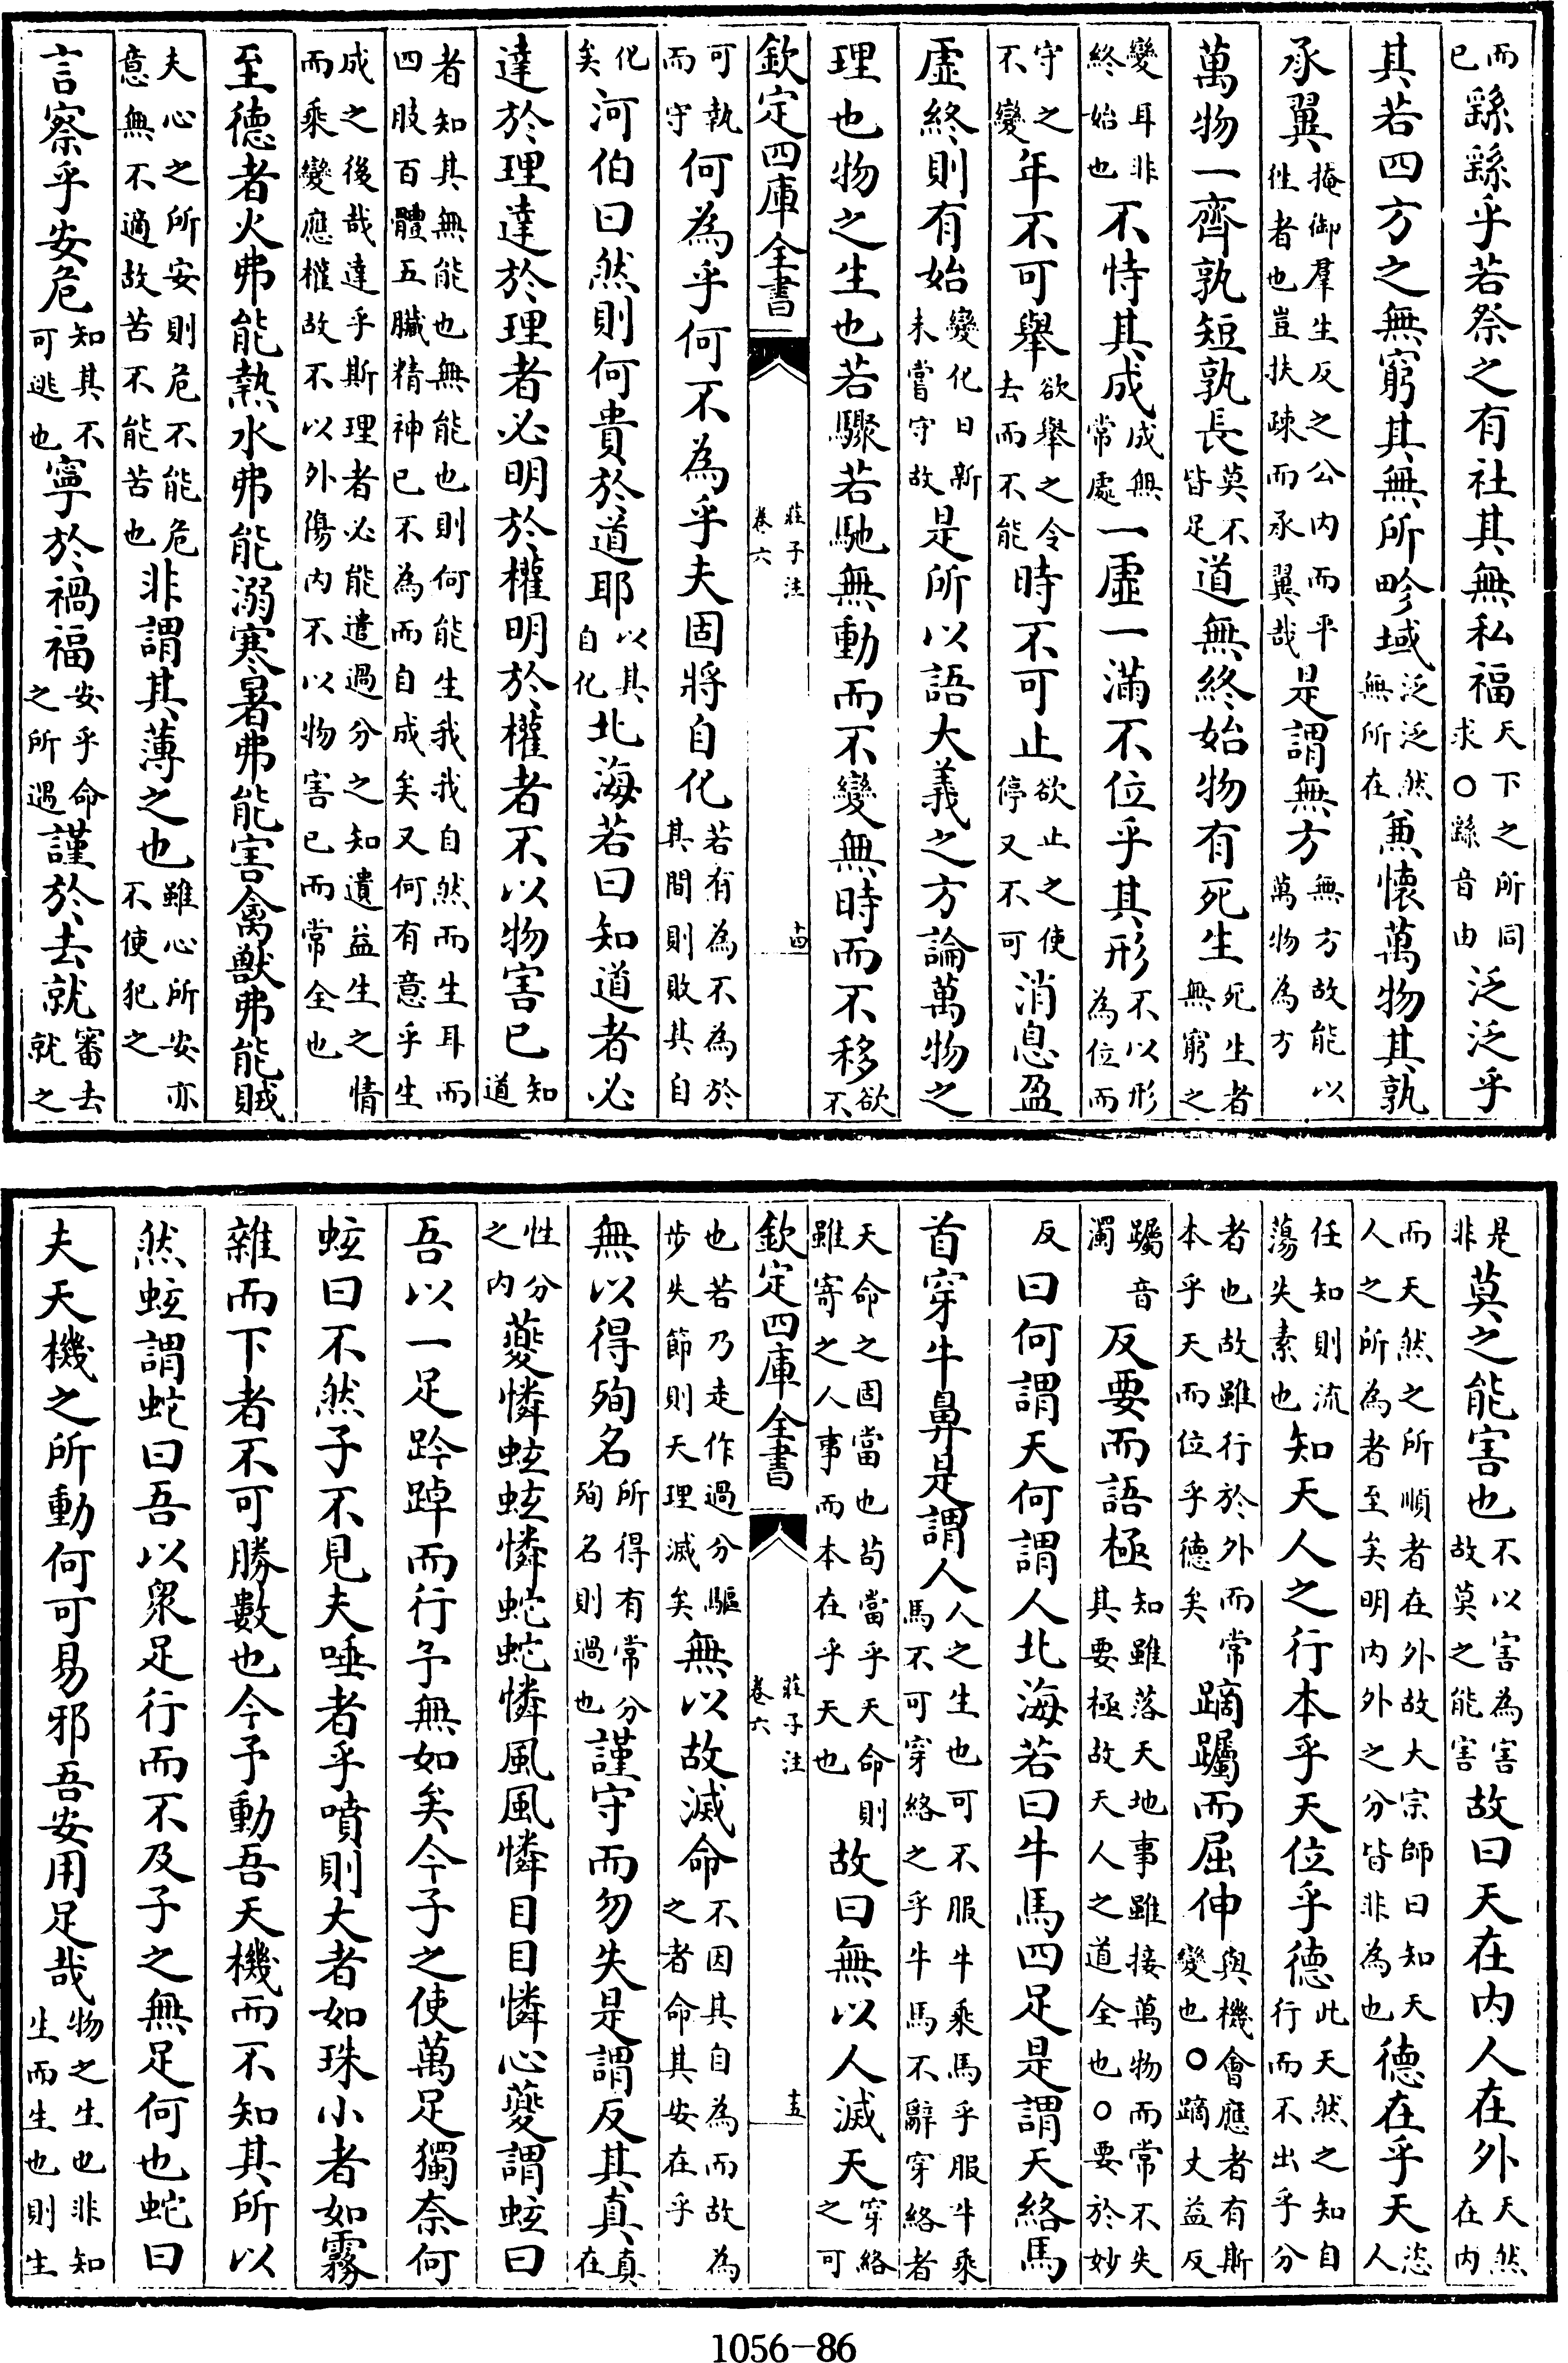 而已繇繇乎若祭之有社其無私福天下之所同求○繇音由泛泛乎
其若四方之無窮其無所畛域泛泛然無所在兼懷萬物其孰
承翼掩御羣生反之公內而平徃者也豈扶疎而承翼哉是謂無方無方故能以萬物為方
萬物一齊孰短孰長莫不皆足道無終始物有死生死生者無窮之
變耳非終始也不恃其成成無常處一虛一滿不位乎其形不以形為位而
守之不變年不可舉欲舉之令去而不能時不可止欲止之使停又不可消息盈
虛終則有始變化日新未嘗守故是所以語大義之方論萬物之
理也物之生也若驟若馳無動而不變無時而不移欲不
欽定四庫全書 莊子注卷六 十四
可執而守何為乎何不為乎夫固將自化若有為不為於其間則敗其自
化矣河伯曰然則何貴於道耶以其自化北海若曰知道者必
達於理達於理者必明於權明於權者不以物害已知道
者知其無能也無能也則何能生我我自然而生耳而四肢百體五臟精神已不為而自成矣又何有意乎生
成之後哉達乎斯理者必能遣過分之知遺益生之情而乘變應權故不以外傷內不以物害已而常全也
至德者火弗能熱水弗能溺寒暑弗能害禽獸弗能賊
夫心之所安則危不能危意無不適故苦不能苦也非謂其薄之也雖心所安亦不使犯之
言察乎安危知其不可逃也寧於禍福安乎命之所遇謹於去就審去就之
是非莫之能害也不以害為害故莫之能害故曰天在內人在外天然在內
而天然之所順者在外故大宗師曰知天人之所為者至矣明內外之分皆非為也德在乎天恣人
任知則流蕩失素也知天人之行本乎天位乎德此天然之知自行而不出乎分
者也故雖行於外而常本乎天而位乎德矣蹢躅而屈伸與機會應者有斯變也○蹢丈益反
躅音濁反要而語極知雖落天地事雖接萬物而常不失其要極故天人之道全也○要於妙
反曰何謂天何謂人北海若曰牛馬四足是謂天絡馬
首穿牛鼻是謂人人之生也可不服牛乘馬乎服牛乘馬不可穿絡之乎牛馬不辭穿絡者
天命之固當也苟當乎天命則雖寄之人事而本在乎天也故曰無以人滅天穿絡之可
欽定四庫全書 莊子注卷六 十五
也若乃走作過分驅步失節則天理滅矣無以故滅命不因其自為而故為之者命其安在乎
無以得殉名所得有常分殉名則過也謹守而勿失是謂反其真真在
性分之內夔憐蚿蚿憐蛇蛇憐風風憐目目憐心夔謂蚿曰
吾以一足趻踔而行予無如矣今子之使萬足獨奈何
蚿曰不然子不見夫唾者乎噴則大者如珠小者如霧
雜而下者不可勝數也今予動吾天機而不知其所以
然蚿謂蛇曰吾以衆足行而不及子之無足何也蛇曰
夫天機之所動何可易邪吾安用足哉物之生也非知生而生也則生
1056-86